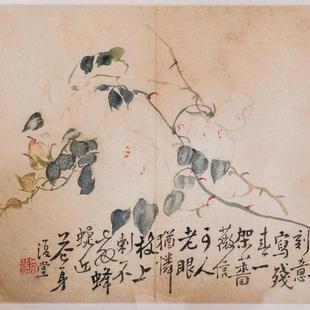 刻意
寫殘
春一
架薔
薇信
可人
老眼
猶憐
枝上
刺不
蜂
蝶近
花身
復堂